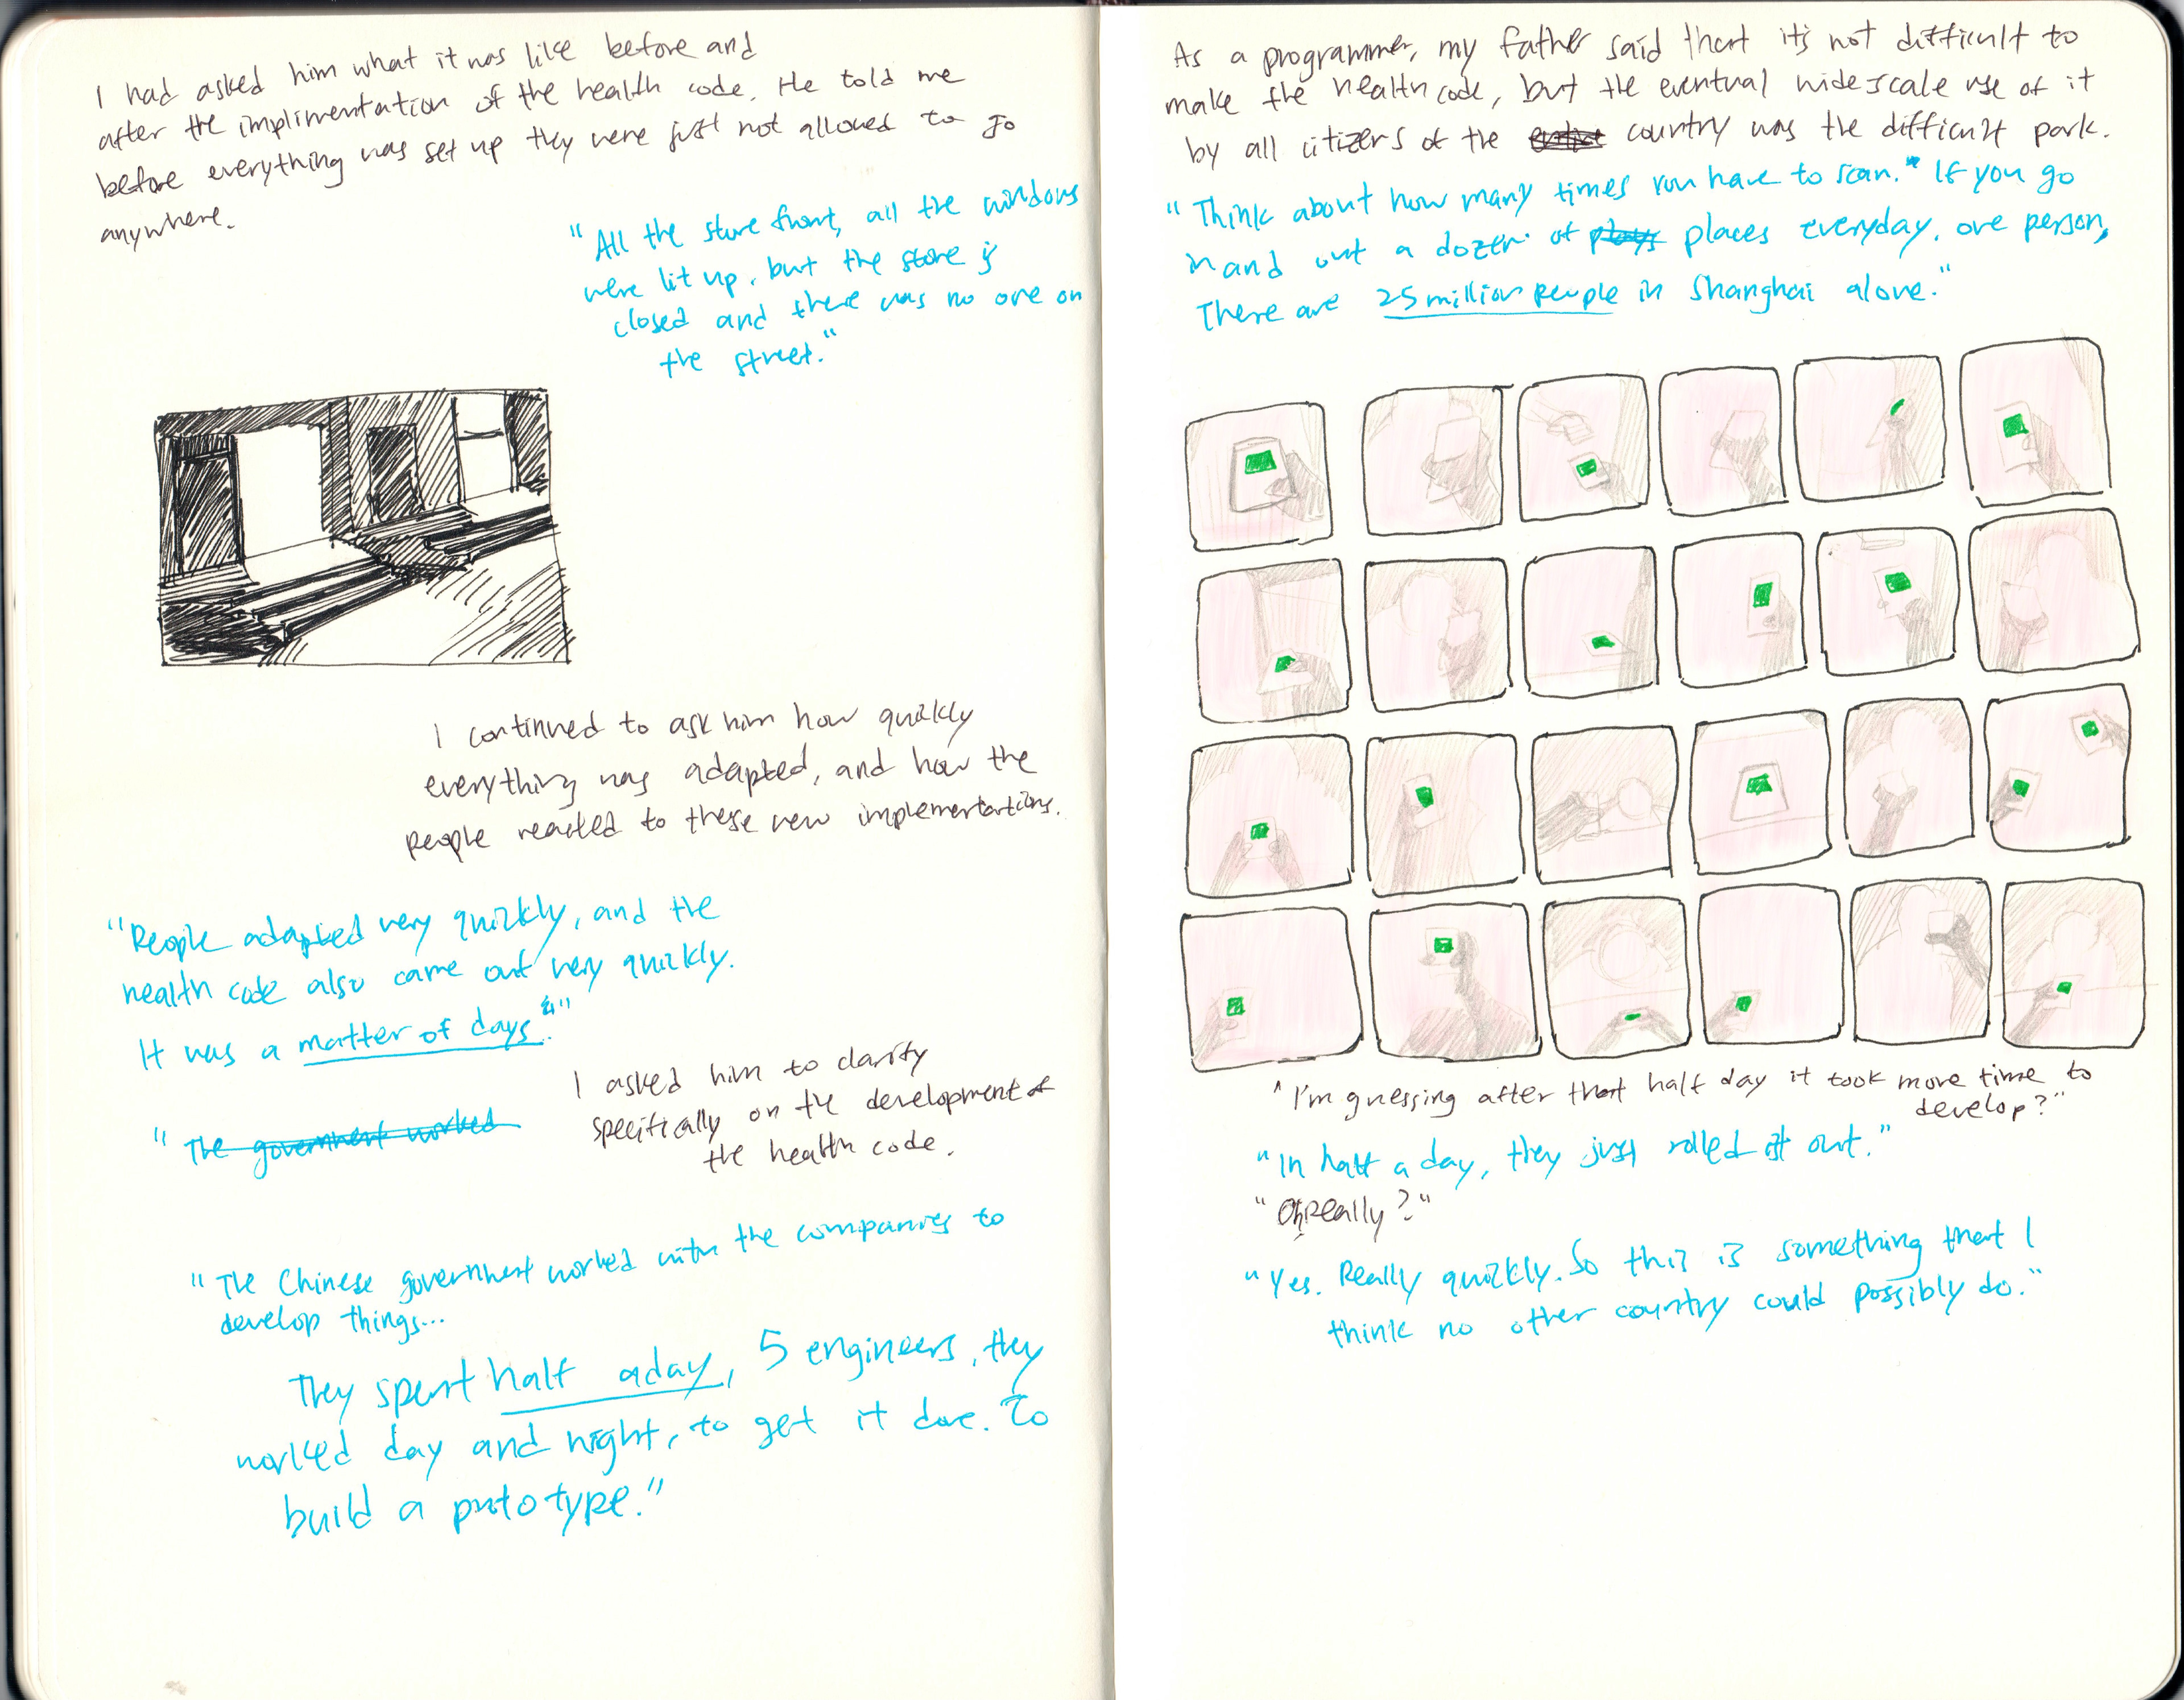 I had asked him what it was like before and
after the implimentation of the health code. He told me
before everything was set up they were just not allowed to go
anywhere.
"All the store front, all the windows
were lit up, but the store is
closed and there was no one on
the street."
I continued to ask him how quickly
everything was adapted, and how the
people reacted to these new implementations.
"People adapted very quickly, and the
health code also came out very quickly.
It was a matter of days."
"The government worked
I asked him to clarify
specifically on the development of
the health code.
"The Chinese government worked with the companies to
develop things...
They spent half a day, 5 engineers, they
worked day and night, to get it done. To
build a prototype."
As a programmer, my father said that it's not difficult to
make the health code, but the eventual widescale use of it
by all citizens of the entire country was the difficult park.
"Think about how many times you have to scan." If you go
in and out a dozen of places everyday, one person,
There are 25 million people in Shanghai alone."
"I'm guessing after that half day it took more time to
develop?"
"In half a day, they just rolled it out."
"Oh, Really?"
"Yes. Really quickly. So this is something that I
think no other country could possibly do."